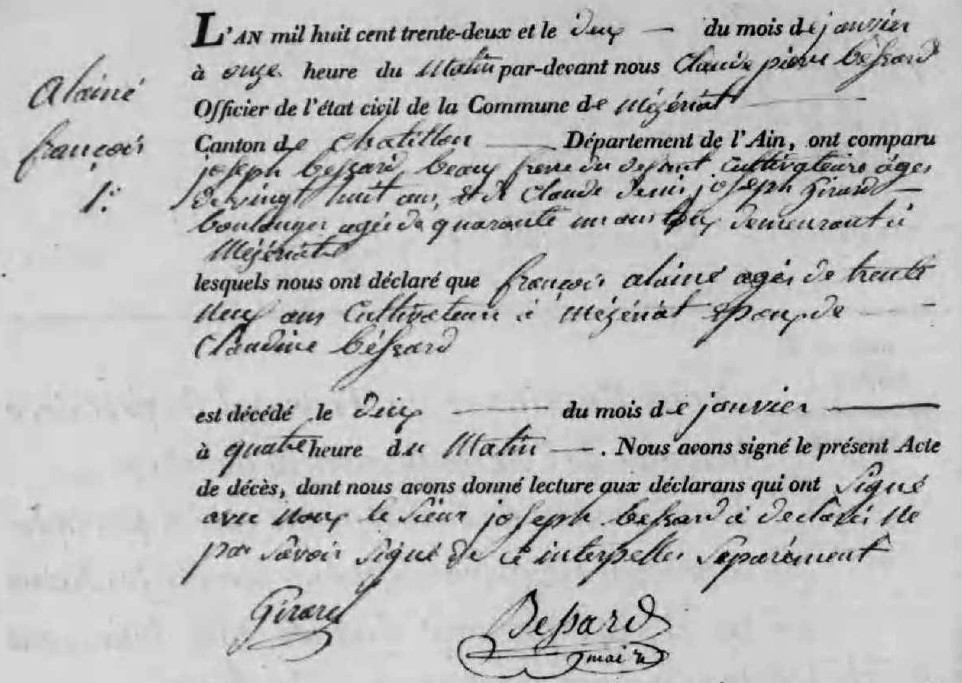 alainé
françois
1.er
L'AN mil huit cent trente-deux et le deux du mois de janvier
à onze heure du Matin par-devant nous Claude pierre béssard
Officier de l'état civil de la Commune de Mézériat
Canton de Chatillon Département de l'Ain, ont comparu
joseph bessard, beaux frere du defunt Cultivateurs âges
de vingt huit ans, & de Claude denis joseph Girard
boulanger agée de quarante un ans tous demeurant à
Mézériat
lesquels nous ont déclaré que françois alainé agés de trente
Neuf ans Cultivateur à Mézériat Epoux de
Claudine béssard
est décédé le deux du mois de janvier
à quatre heure du Matin . Nous avons signé le présent Acte
de décès, dont nous avons donné lecture aux déclarans qui ont Signé
avec Nous le Sieur joseph bessard à declarés ne
pas Savoir Signé de ce interpellés Séparément
Girard
Bessard
maire